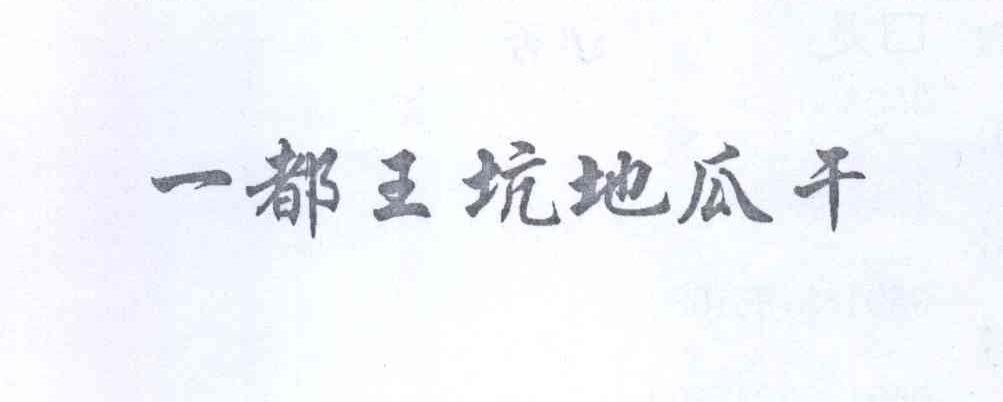 一都王坑地瓜干